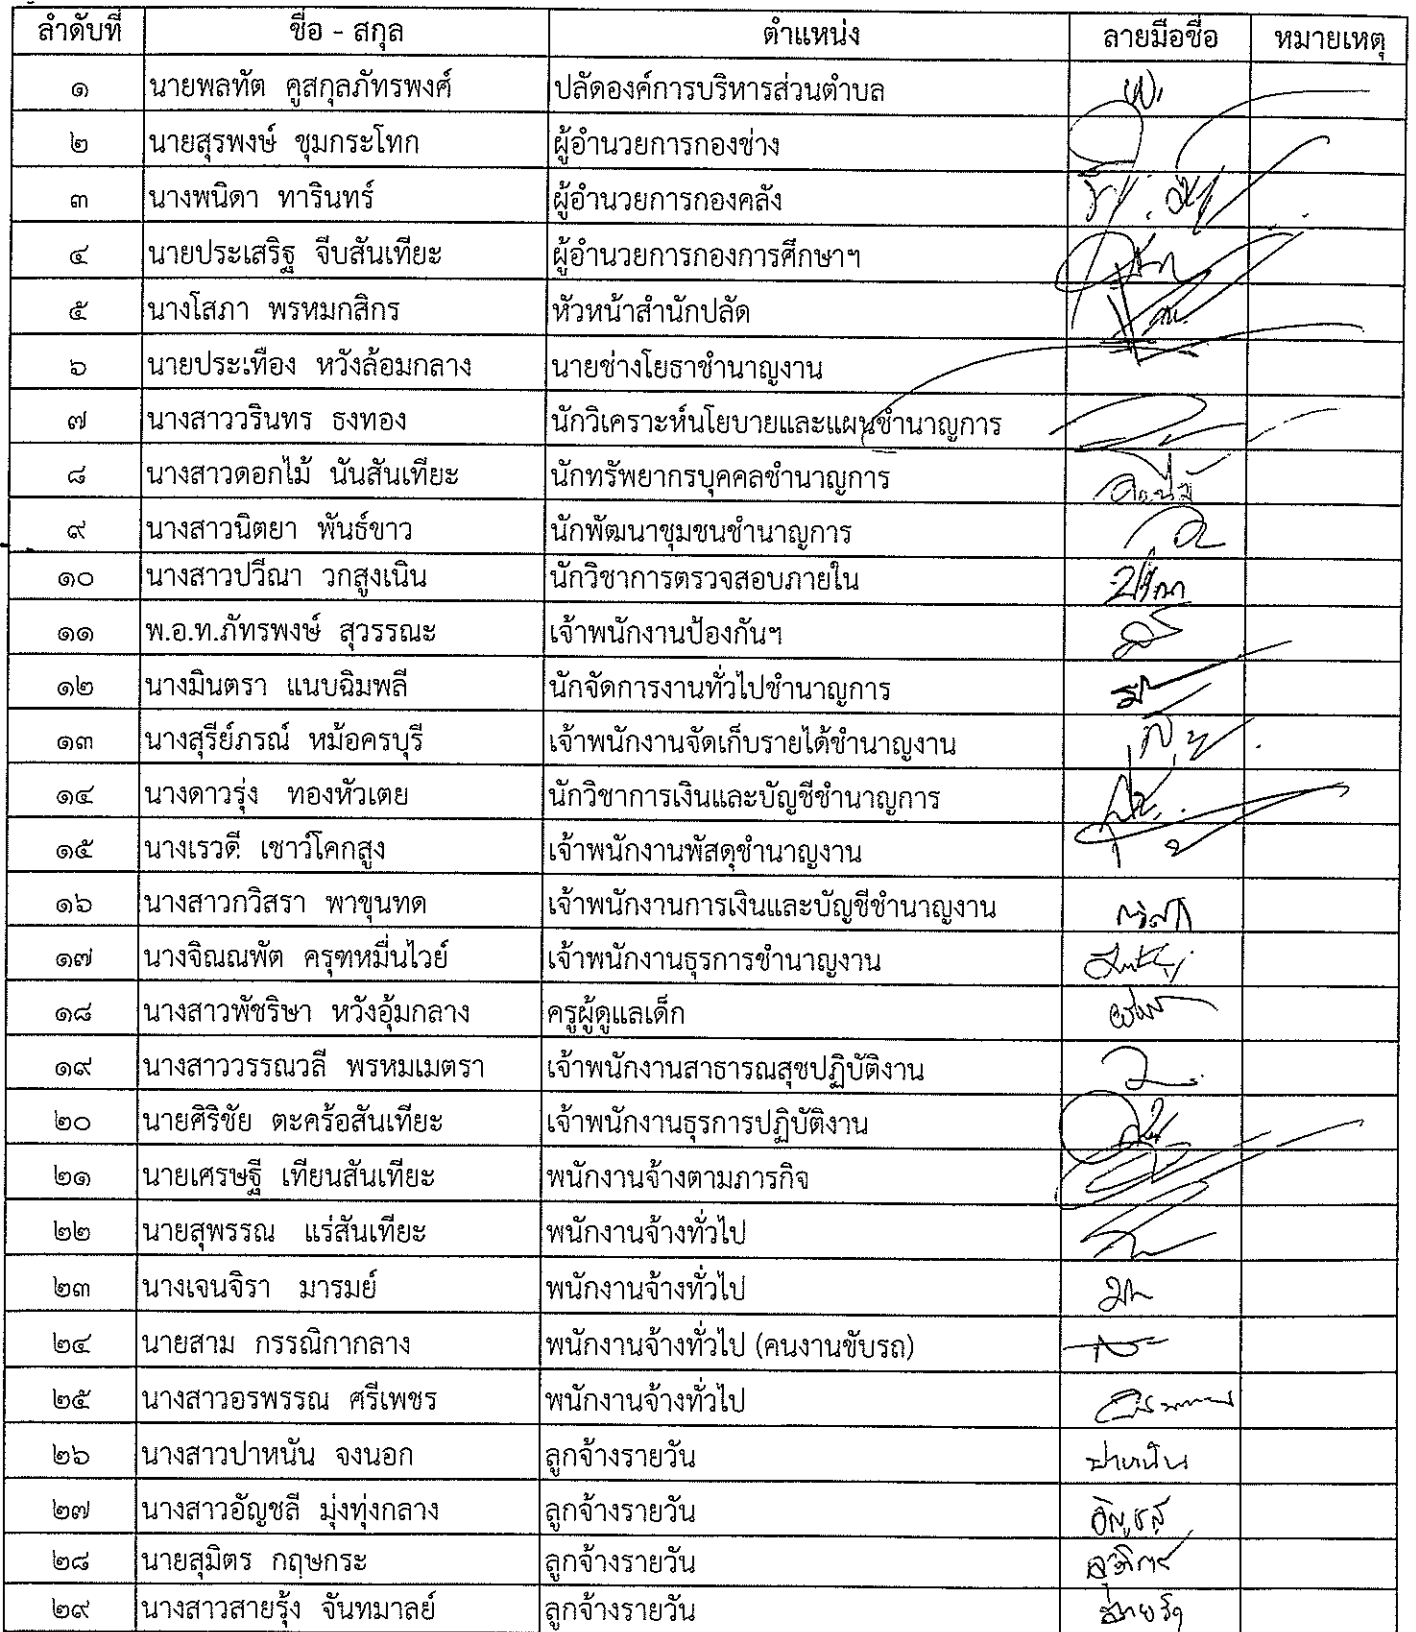 ลำดับที่ ชื่อ - สกุล ตำแหน่ง ลายมือชื่อ หมายเหตุ
๑ นายพลทัต คูสกุลภัทรพงศ์ ปลัดองค์การบริหารส่วนตำบล
๒ นายสุรพงษ์ ชุมกระโทก ผู้อำนวยการกองช่าง
๓ นางพนิดา ทารินทร์ ผู้อำนวยการกองคลัง
๔ นายประเสริฐ จีบสันเทียะ ผู้อำนวยการกองการศึกษาฯ
๕ นางโสภา พรหมกสิกร หัวหน้าสำนักปลัด
๖ นายประเทือง หวังล้อมกลาง นายช่างโยธาชำนาญงาน
๗ นางสาววรินทร ธงทอง นักวิเคราะห์นโยบายและแผนชำนาญการ
๘ นางสาวดอกไม้ นันสันเทียะ นักทรัพยากรบุคคลชำนาญการ
๙ นางสาวนิตยา พันธ์ขาว นักพัฒนาชุมชนชำนาญการ
๑๐ นางสาวปวีณา วกสูงเนิน นักวิชาการตรวจสอบภายใน ปวีณา
๑๑ พ.อ.ท.ภัทรพงษ์ สุวรรณะ เจ้าพนักงานป้องกันฯ
๑๒ นางมินตรา แนบฉิมพลี นักจัดการงานทั่วไปชำนาญการ
๑๓ นางสุรีย์ภรณ์ หม้อครบุรี เจ้าพนักงานจัดเก็บรายได้ชำนาญงาน
๑๔ นางดาวรุ่ง ทองหัวเตย นักวิชาการเงินและบัญชีชำนาญการ
๑๕ นางเรวดี เชาว์โคกสูง เจ้าพนักงานพัสดุชำนาญงาน
๑๖ นางสาวกวิสรา พาขุนทด เจ้าพนักงานการเงินและบัญชีชำนาญงาน กวิสรา
๑๗ นางจิณณพัต ครุฑหมื่นไวย์ เจ้าพนักงานธุรการชำนาญงาน
๑๘ นางสาวพัชริษา หวังอุ้มกลาง ครูผู้ดูแลเด็ก
๑๙ นางสาววรรณวลี พรหมเมตรา เจ้าพนักงานสาธารณสุขปฏิบัติงาน
๒๐ นายศิริชัย ตะคร้อสันเทียะ เจ้าพนักงานธุรการปฏิบัติงาน
๒๑ นายเศรษฐี เทียนสันเทียะ พนักงานจ้างตามภารกิจ
๒๒ นายสุพรรณ แร่สันเทียะ พนักงานจ้างทั่วไป
๒๓ นางเจนจิรา มารมย์ พนักงานจ้างทั่วไป
๒๔ นายสาม กรรณิกากลาง พนักงานจ้างทั่วไป (คนงานขับรถ)
๒๕ นางสาวอรพรรณ ศรีเพชร พนักงานจ้างทั่วไป
๒๖ นางสาวปาหนัน จงนอก ลูกจ้างรายวัน ปาหนัน
๒๗ นางสาวอัญชลี มุ่งทุ่งกลาง ลูกจ้างรายวัน อัญชลี
๒๘ นายสุมิตร กฤษกระ ลูกจ้างรายวัน สุมิตร
๒๙ นางสาวสายรุ้ง จันทมาลย์ ลูกจ้างรายวัน สายรุ้ง